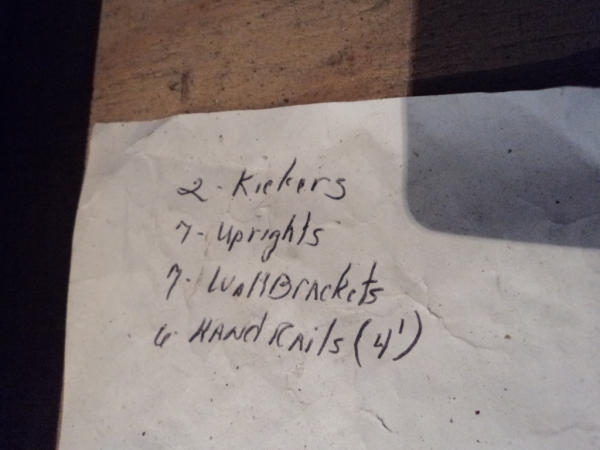 2 - Kickers
7 - Uprights
7 - WallBrackets
6 - HANdRAils (4')